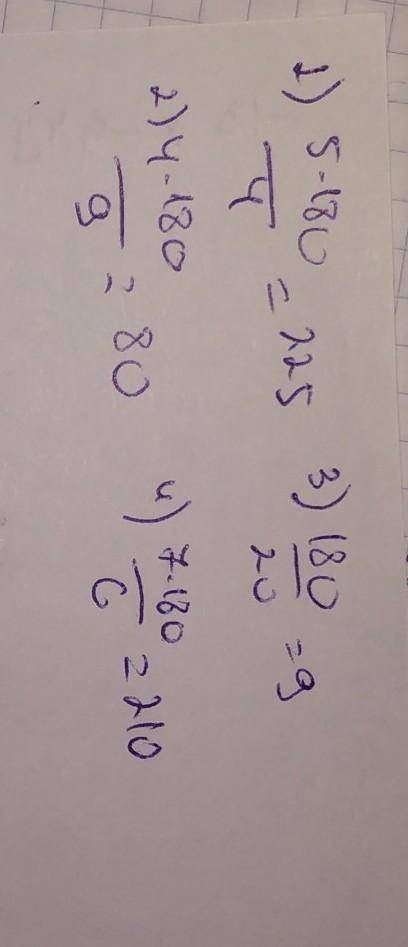 1) 5·180/4 = 225
2) 4·180/9 = 80
3) 180/20 = 9
4) 7·180/6 = 210